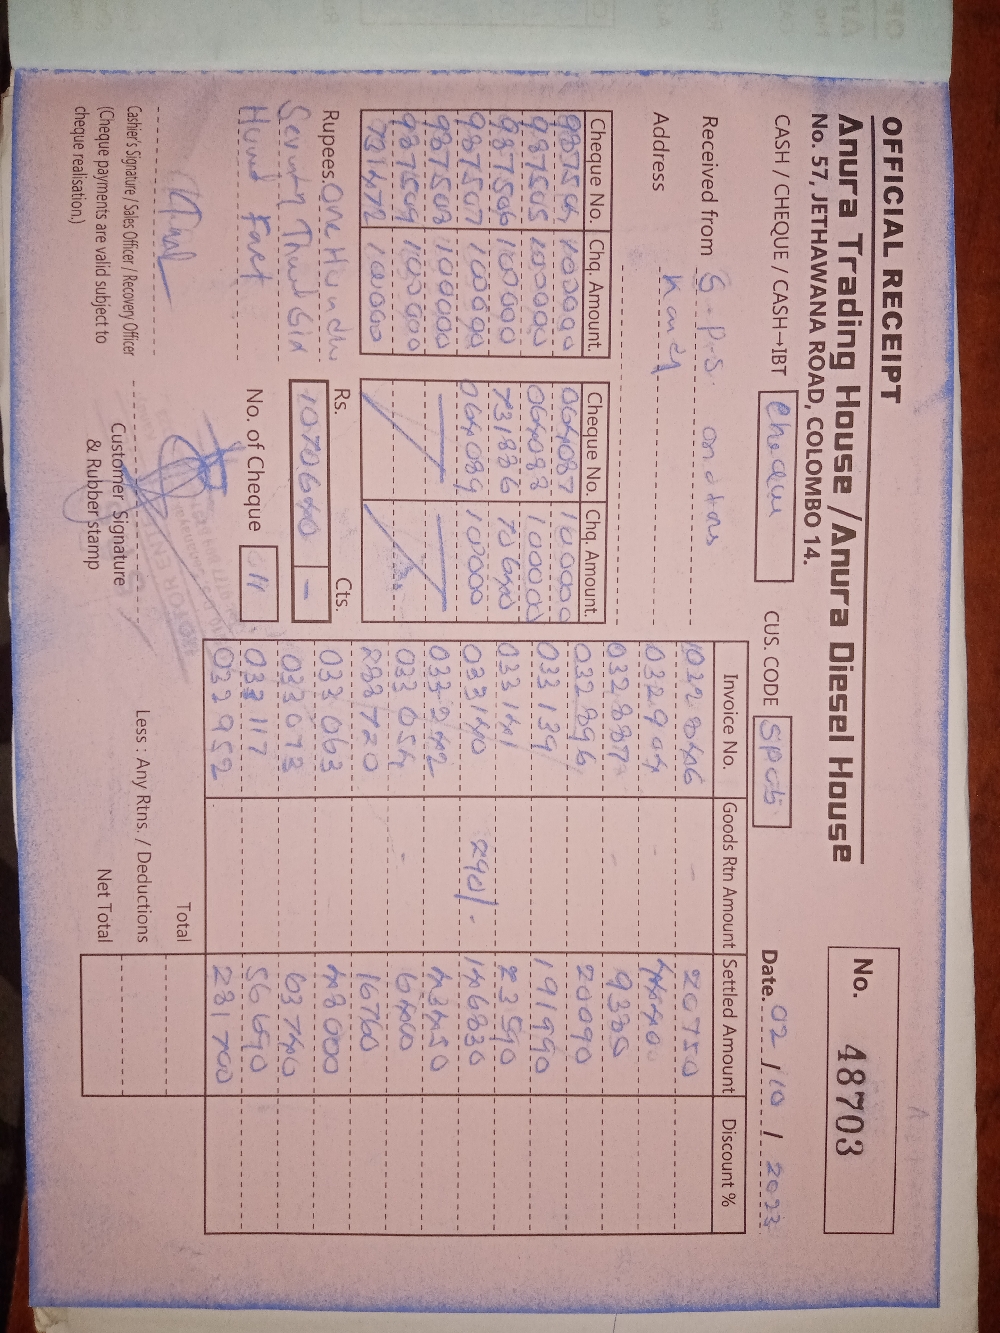 OFFICIAL RECEIPT
Anura Trading House / Anura Diesel House
No. 57, JETHAWANA ROAD, COLOMBO 14.
No. 48703
CASH / CHEQUE / CASH→IBT
CUS. CODE
Date. 02 / 10 / 2023
Received from S.P.S.
Address Kandy
Cheque No. Chq. Amount. Cheque No. Chq. Amount.
987504 100000 064087 100000
987505 100000 064088 100000
987506 100000 731886
987507 100000 064089 100000
987508 100000
987509 100000
100000
Invoice No. Goods Rtn Amount Settled Amount Discount %
20750
032904
032887 9380
032896 20090
033139 191990
033141 23590
033140 290/- 146830
033242 43450
033054 6400
288720 16760
033063 48000
033073 63740
033117 56690
032952 281700
Total
Less : Any Rtns. / Deductions
Net Total
Rupees. One Hundred
Rs. Cts.
1070640 -
No. of Cheque 11
Cashier's Signature / Sales Officer / Recovery Officer
(Cheque payments are valid subject to
cheque realisation.)
Customer Signature
& Rubber stamp